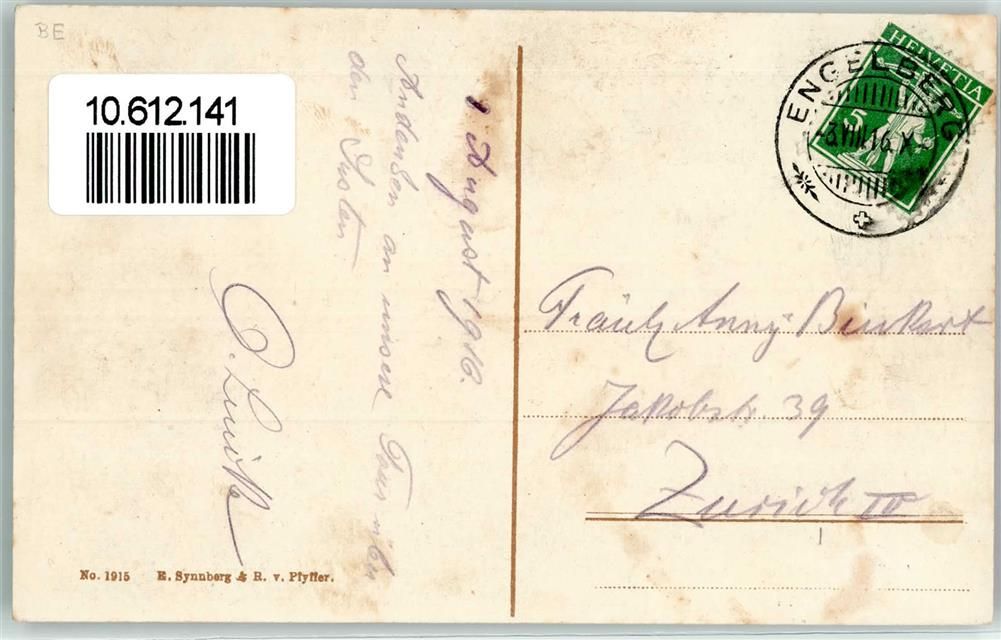 BE
10.612.141
1 August 1916.
Andenken an unsere Tour über
den Susten
No. 1915 E. Synnberg & R. v. Pfyffer.
HELVETIA
5
ENGELBERG
-3.VIII.16.X
Fräulz Anny Binkert
Jakobstr. 39
Zürich IV